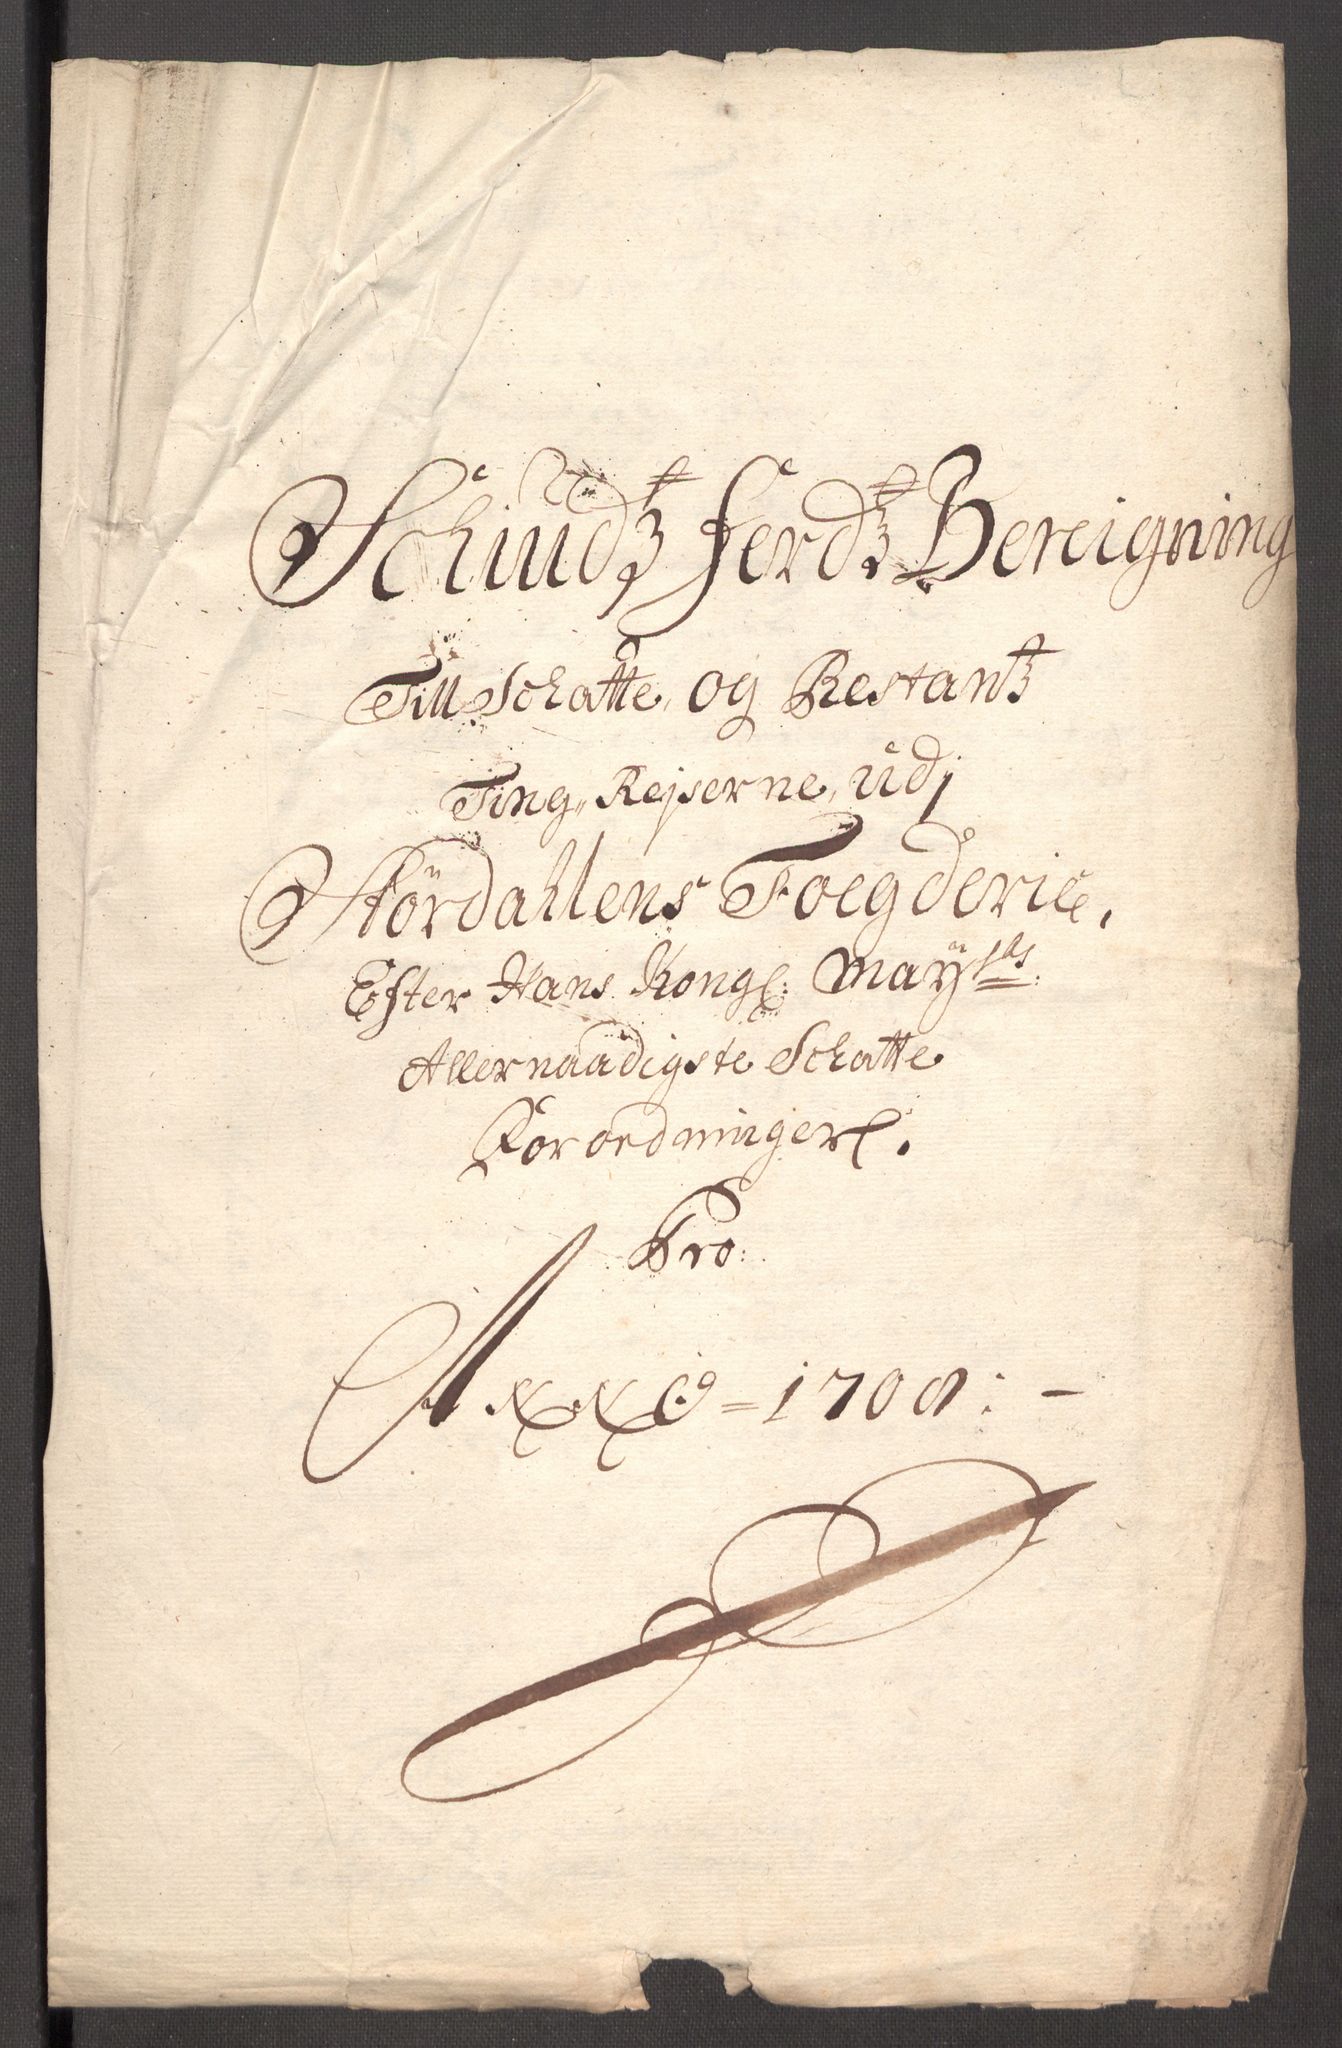 Schiudtz ferdtz Bereigning
Till Schatte, og Restantz
Ting,, Rejserne, udj
Størdahlens Foegderie,
Efter Hans Kongl: Maÿtts:
Allernaadigste Schatte
Forordninger.
Pro:
Anno = 1708: -